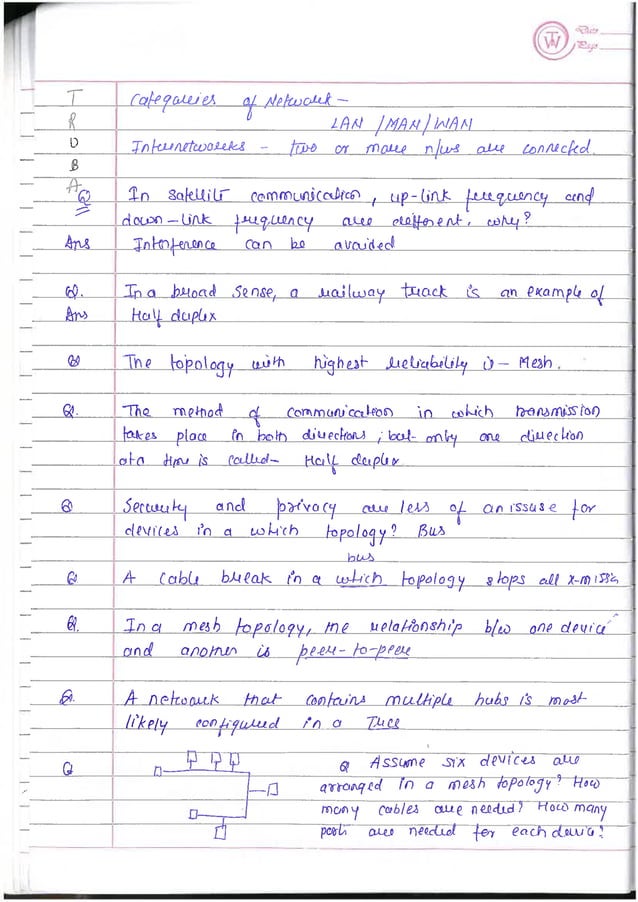 TW Date
Page
T Categouries of Network -
R LAN / MAN / WAN
D Internetworks - two or more n/ws are connected.
B
A
Q In satellite communication, up-link frequency and
down-link frequency are different. why?
Ans Interference can be avoided
Q. In a broad sense, a railway track is an example of
Ans Half duplex
Q The topology with highest reliability is - Mesh.
Q. The method of communication in which transmission
takes place in both directions, but only one direction
at a time is called - Half duplex
Q Security and privacy are less of an issuse for
devices in a which topology? Bus
bus
Q A cable break in a which topology stops all x-missn
Q. In a mesh topology, the relationship b/w one device
and another is peer-to-peer
Q. A network that contains multiple hubs is most
likely configured in a Tree
Q Q Assume six devices are
arranged in a mesh topology? How
many cables are needed? How many
ports are needed for each device?